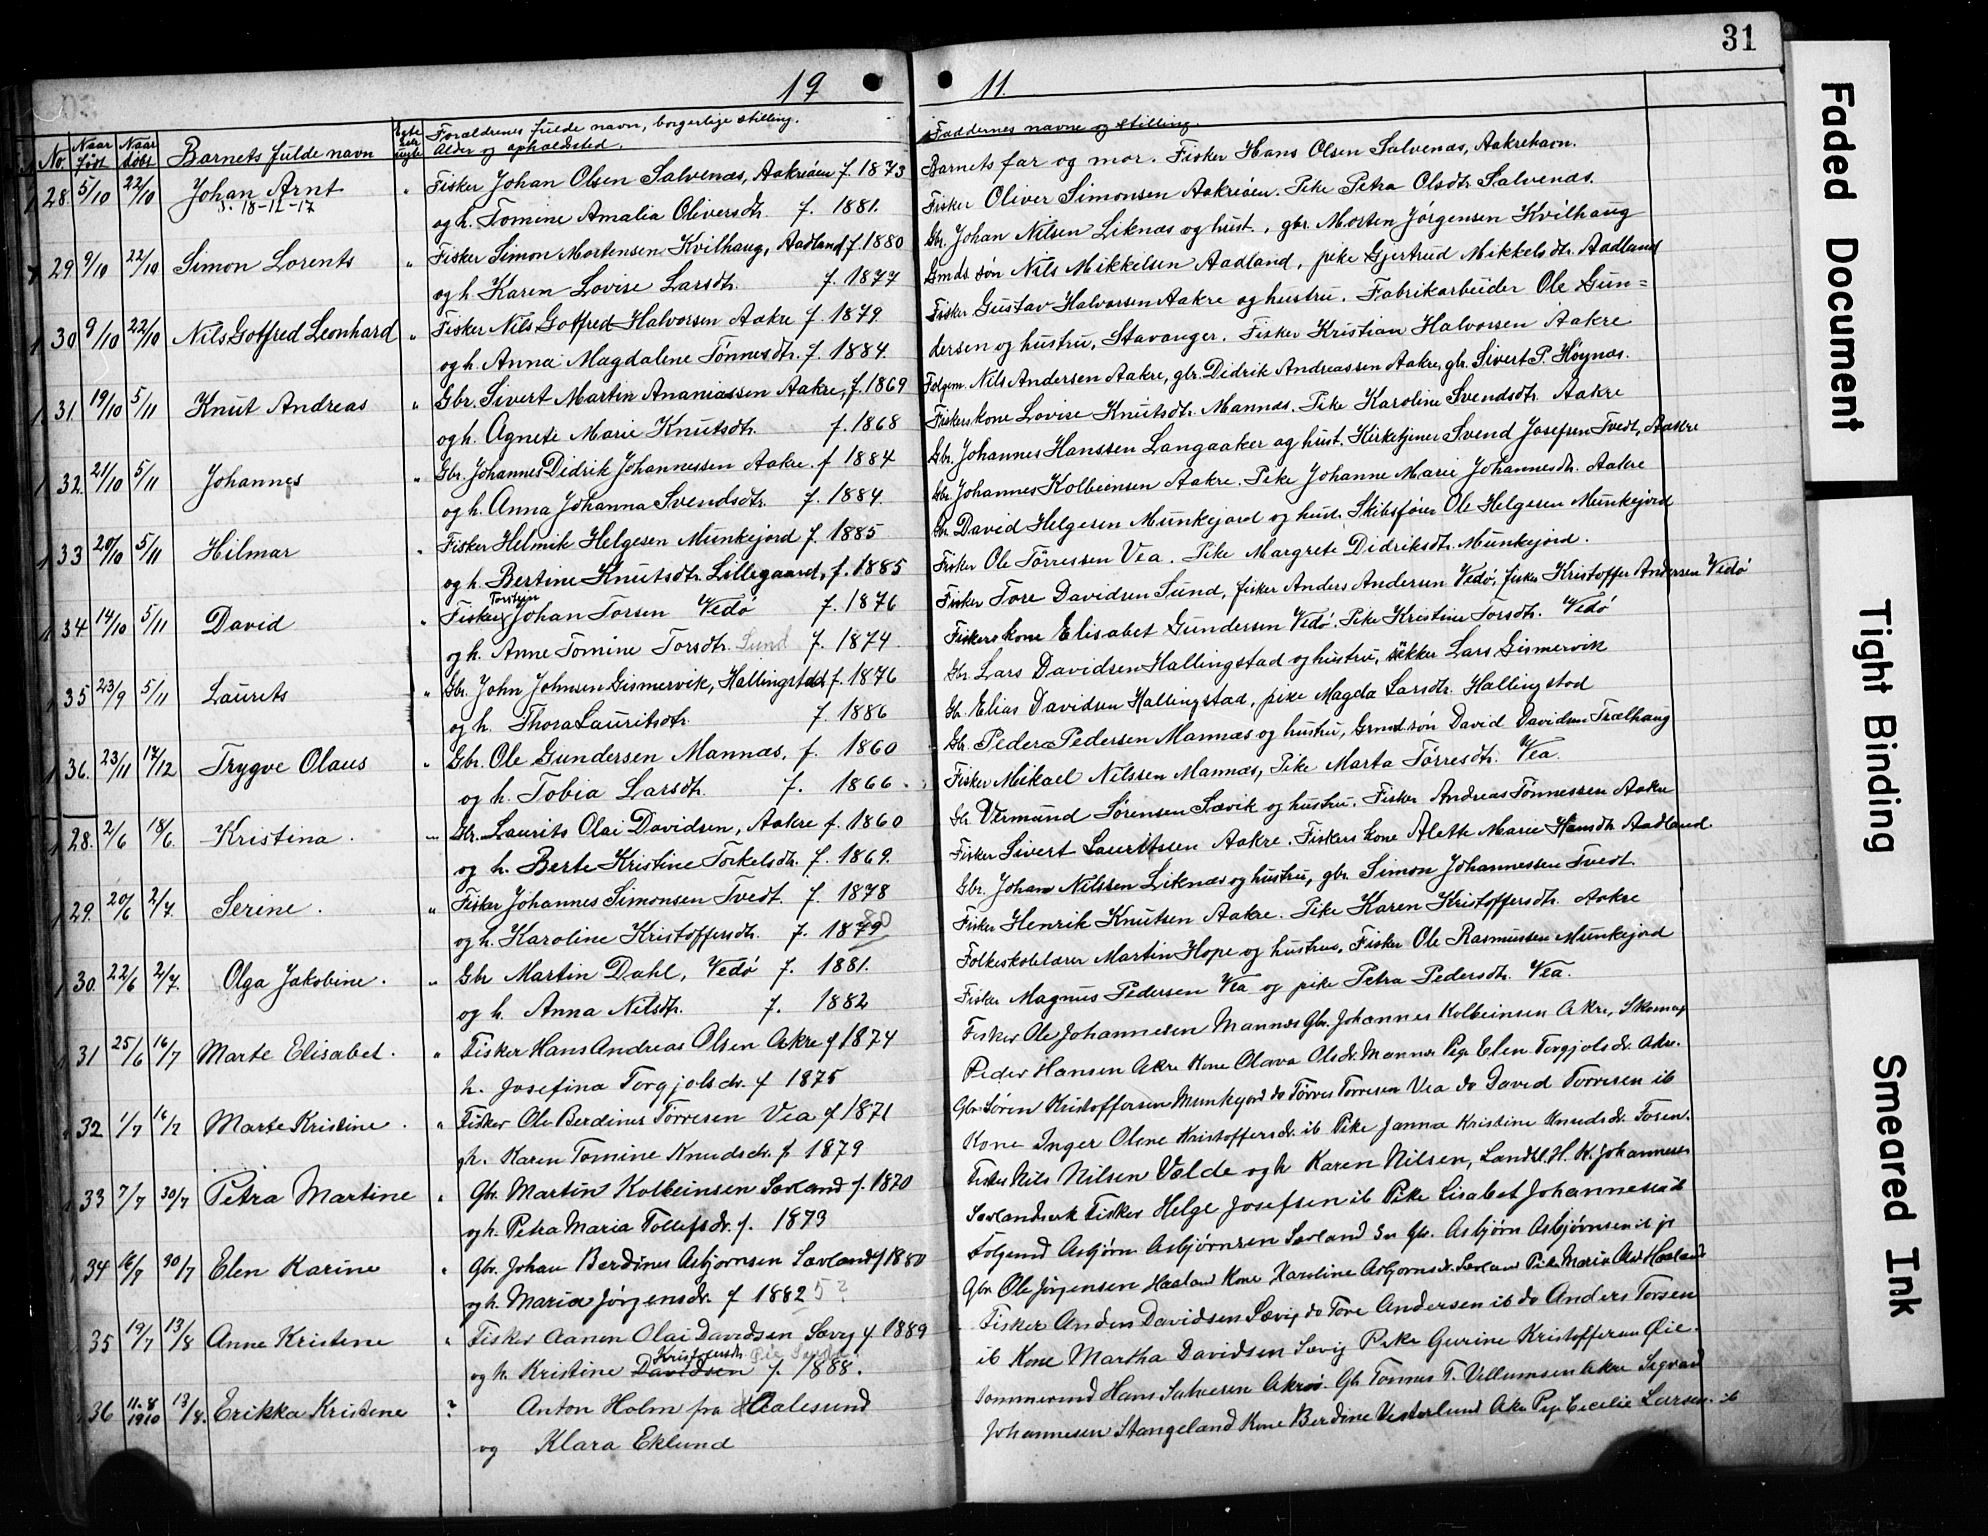 31
19 11.
No. Naar født Naar døbt Barnets fulde navn Egte eller uegte Forældrenes fulde navn, borgerlige stilling. Alder og opholdssted. Faddernes navne og stilling.
28. 5/10 22/10 Johan Arnt " Fisker Johan Olsen Salvenæs, Aakreøen f. 1873 Barnets far og mor. Fisker Hans Olsen Salvenæs, Aakrehavn.
18-12-17 og h. Tomine Amalia Oliversdtr. f. 1881. Fisker Oliver Simonsen Aakreøen. Pike Petra Olsdtr. Salvenæs.
29 9/10 22/10 Simon Lorents " Fisker Simon Mortensen Kvilhaug, Aadland f. 1880 Gbr. Johan Nilsen Liknæs og hust., gbr. Morten Jørgensen Kvilhaug
og h. Karen Lovise Larsdtr. f. 1877 Gmds. søn Nils Mikkelsen Aadland, pike Gjertrud Mikkelsdtr. Aadland
30 9/10 22/10 Nils Gotfred Leonhard " Fisker Nils Gotfred Halvorsen Aakre f. 1879 Fisker Gustav Halvorsen Aakre og hustru. Fabrikarbeider Ole Gun=
og h. Anna Magdalene Tønnesdtr. f. 1884. dersen og hustru, Stavanger. Fisker Kristian Halvorsen Aakre
31. 19/10 5/11 Knut Andreas " Gbr. Sivert Martin Ananiassen Aakre, f. 1869 Følgem. Nils Andersen Aakre, gbr. Didrik Andreassen Aakre, gbr. Sivert P. Høynæs.
og h. Agnete Marie Knutsdtr. f. 1868 Fiskers kone Lovise Knutsdtr. Mannæs. Pike Karoline Svendsdtr. Aakre
32. 21/10 5/11 Johannes " Gbr. Johannes Didrik Johannessen Aakre. f 1884 Gbr. Johannes Hanssen Langaaker og hust. Kirketjener Svend Josefsen Tvedt, Aakre
og h. Anna Johanna Svendsdtr. f. 1884. Gbr. Johannes Kolbeinsen Aakre. Pike Johanne Marie Johannesdtr. Aakre
33 20/10 5/11 Hilmar " Fisker Helmik Helgesen Munkejord f. 1885 Gbr. David Helgesen Munkejord og hust. Skibsfører Ole Helgesen Munkejord
og h. Bertine Knutsdtr. Lillegaard, f. 1885 Fisker Ole Tørressen Vea. Pike Margrete Didriksdtr. Munkejord.
34 14/10 5/11 David " Fisker Torstein Johan Torsen Vedø f. 1876 Fisker Tore Davidsen Sund, fisker Anders Andersen Vedø, fisker Kristoffer Andersen Vedø
og h. Anne Tomine Torsdtr. Sund f. 1874 Fiskers kone Elisabet Gundersen Vedø. Pike Kristine Torsdtr. Vedø
35 23/9 5/11 Laurits " Gbr. John Johnsen Gismervik, Hallingstad f. 1876 Gbr. Lars Davidsen Hallingstad og hustru, enkem. Lars Gismervik
og h. Thora Lauritsdtr. f. 1886 Gbr. Elias Davidsen Hallingstad, pike Magda Larsdtr. Hallingstad
36. 23/11 17/12 Trygve Olaus " Gbr. Ole Gundersen Mannæs, f. 1860 Gbr. Peder Pedersen Mannæs og hustru, Grmd. søn David Davidsen Trælhaug
og h. Tobia Larsdtr. f. 1866. Fisker Mikael Nilssen Mannæs, Pike Marta Tørresdtr. Vea.
28. 2/6 18/6. Kristina. " Gbr. Laurits Olai Davidsen, Aakre f. 1860 Gbr. Vermund Sørensen Sævik og hustru. Fisker Andreas Tønnessen Aakre
og h. Berte Kristine Torkelsdtr. f. 1869. Fisker Sivert Lauritssen Aakre. Fiskers kone Alette Marie Hansdtr. Aadland.
29. 20/6 2/7. Serine. " Fisker Johannes Simonsen Tvedt. f. 1878 Gbr. Johan Nilssen Liknæs og hustru, gbr. Simon Johannessen Tvedt.
og h. Karoline Kristoffersdtr. f. 1879 80 Fisker Henrik Knutsen Aakre. Pike Karen Kristoffersdtr. Aakre
30. 22/6 2/7. Olga Jakobine. " Gbr Martin Dahl, Vedø f. 1881. Folkeskolelærer Martin Hope og hustru, Fisker Ole Rasmussen Munkejord
og h. Anna Nilsdtr. f. 1882 Fisker Magnus Pedersen Vea og pike Petra Pedersdtr. Vea.
31 25/6 16/7 Marte Elisabet. " Fisker Hans Andreas Olsen Akre f 1874 Fisker Ole Johannesen Mannes Gbr. Johannes Kolbeinsen Akre, Skomag
h. Josefina Torgjols dr. f 1875 Peder Hansen Akre Kone Olava Ols dr. Mannes Pige Elen Torgjols dr. Akre.
32 1/7 16/7 Marte Kristine. " Fisker Ole Berdines Tørresen Vea f 1871 Gbr Sören Kristoffersen Munkejord do Tørres Torresen Vea do David Torresen ib
gh. Karen Tomine Knudsdr. f 1879 Kone Inger Olene Kristoffersdr. ib Pike Janna Kristine Knudsdr. Tosen.
33 7/7 30/7 Petra Martine " Gbr. Martin Kolbeinsen Sævland f. 1870 Fisker Nils Nilsen Valde og h Karen Nilsen, Landhl. H. K. Johannesen
og h. Petra Maria Tollefsdr. f. 1873 Sævlandsvik Fisker Helge Josefsen ib Pike Lisabet Johannesen ib
34 16/7 30/7 Elen Karine " Gbr. Johan Berdines Asbjornsen Sævland f 1880 Følgemd Asbjørn Asbjørnsen Sævland Gbr. Asbjørn Asbjørnsen ib
og h. Maria Jørgensdr. f 1882 5? Gbr Ole Jørgensen Haaland Kone Karoline Asbjornsdr. Sævland Pike Maria Haaland
35 19/7 13/8 Anne Kristine " Fisker Aanen Olai Davidsen Sævig f 1889 Fisker Anden Davidsen Sævig do Tore Andersen ib do Anders Torsen
og h. Kristine Davidsen Kristofersdtr. Øie f. 1888. ib Kone Martha Davidsen Sævig Pike Gurine Kristoffersen Øie.
36 11.8 1910 13/8. Erikka Kristine ? Anton Holm fra Aalesund Tømmermd Hans Salvesen Akreø. Gb. Tønnes T. Villumsen Akre Sigvard
og Klara Eklund Johannesen Stangeland Kone Berdine Vesterlund Akre Pige Cecilie Larsen. ib
Faded Document
Tight Binding
Smeared Ink